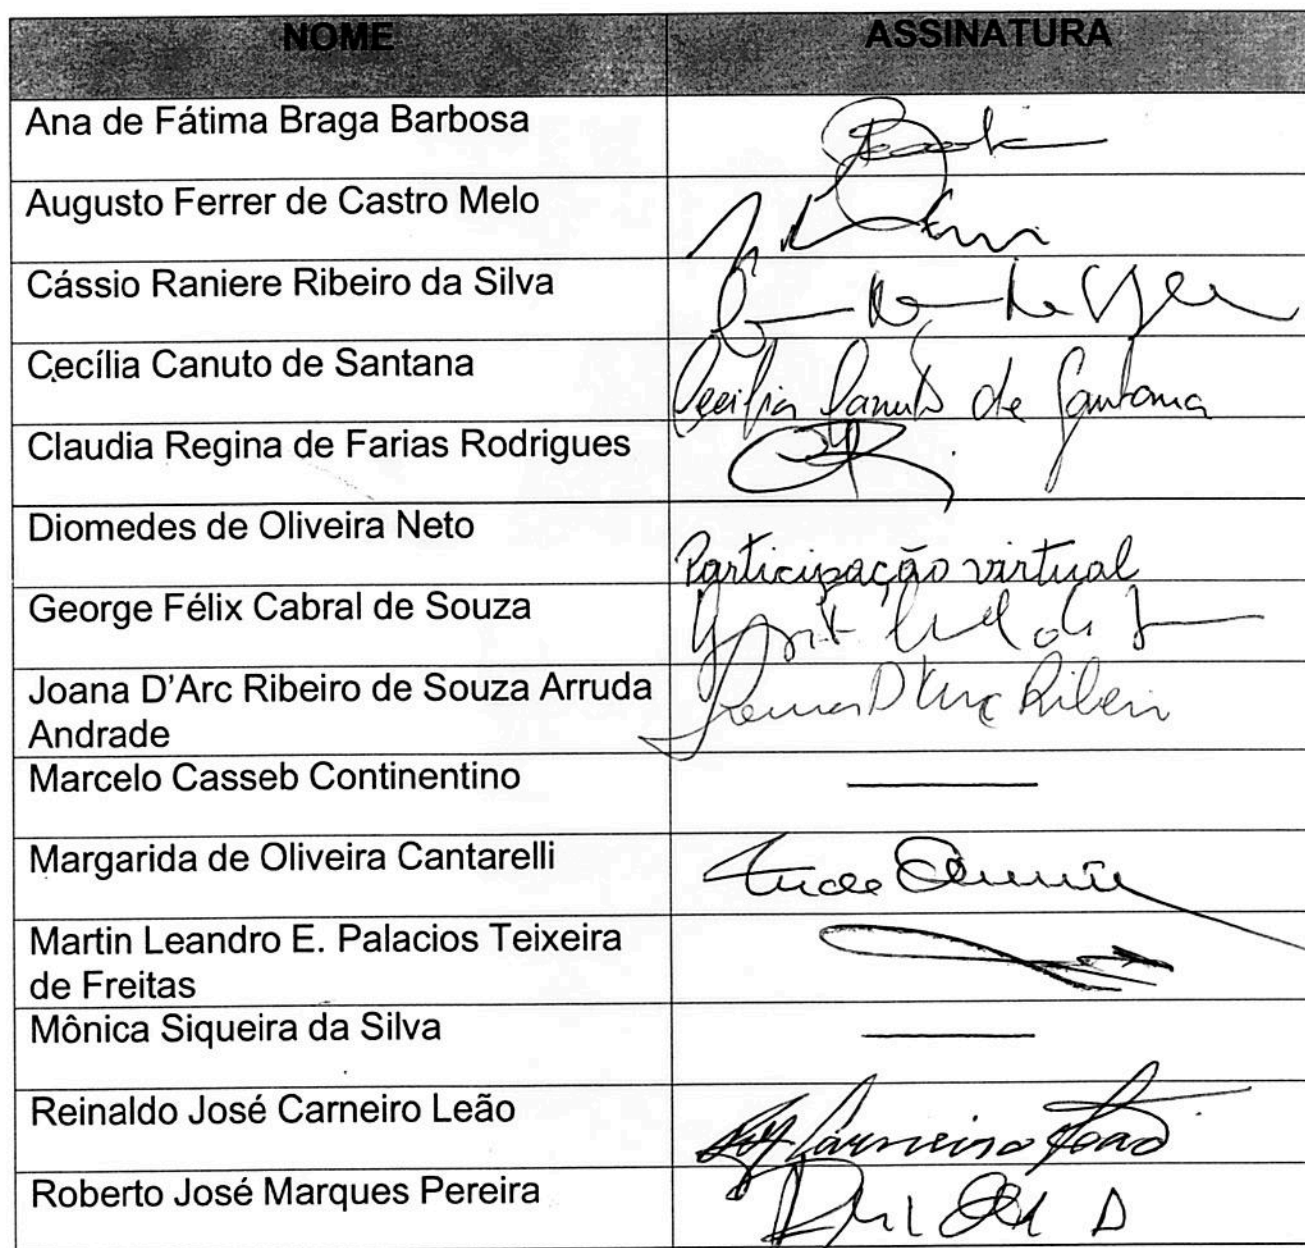 NOME ASSINATURA
Ana de Fátima Braga Barbosa
Augusto Ferrer de Castro Melo
Cássio Raniere Ribeiro da Silva
Cecília Canuto de Santana Cecilia Canuto de Santana
Claudia Regina de Farias Rodrigues
Diomedes de Oliveira Neto Participação virtual
George Félix Cabral de Souza
Joana D'Arc Ribeiro de Souza Arruda
Andrade Joana D'Arc Ribeiro
Marcelo Casseb Continentino
Margarida de Oliveira Cantarelli
Martin Leandro E. Palacios Teixeira
de Freitas
Mônica Siqueira da Silva
Reinaldo José Carneiro Leão Carneiro Leão
Roberto José Marques Pereira